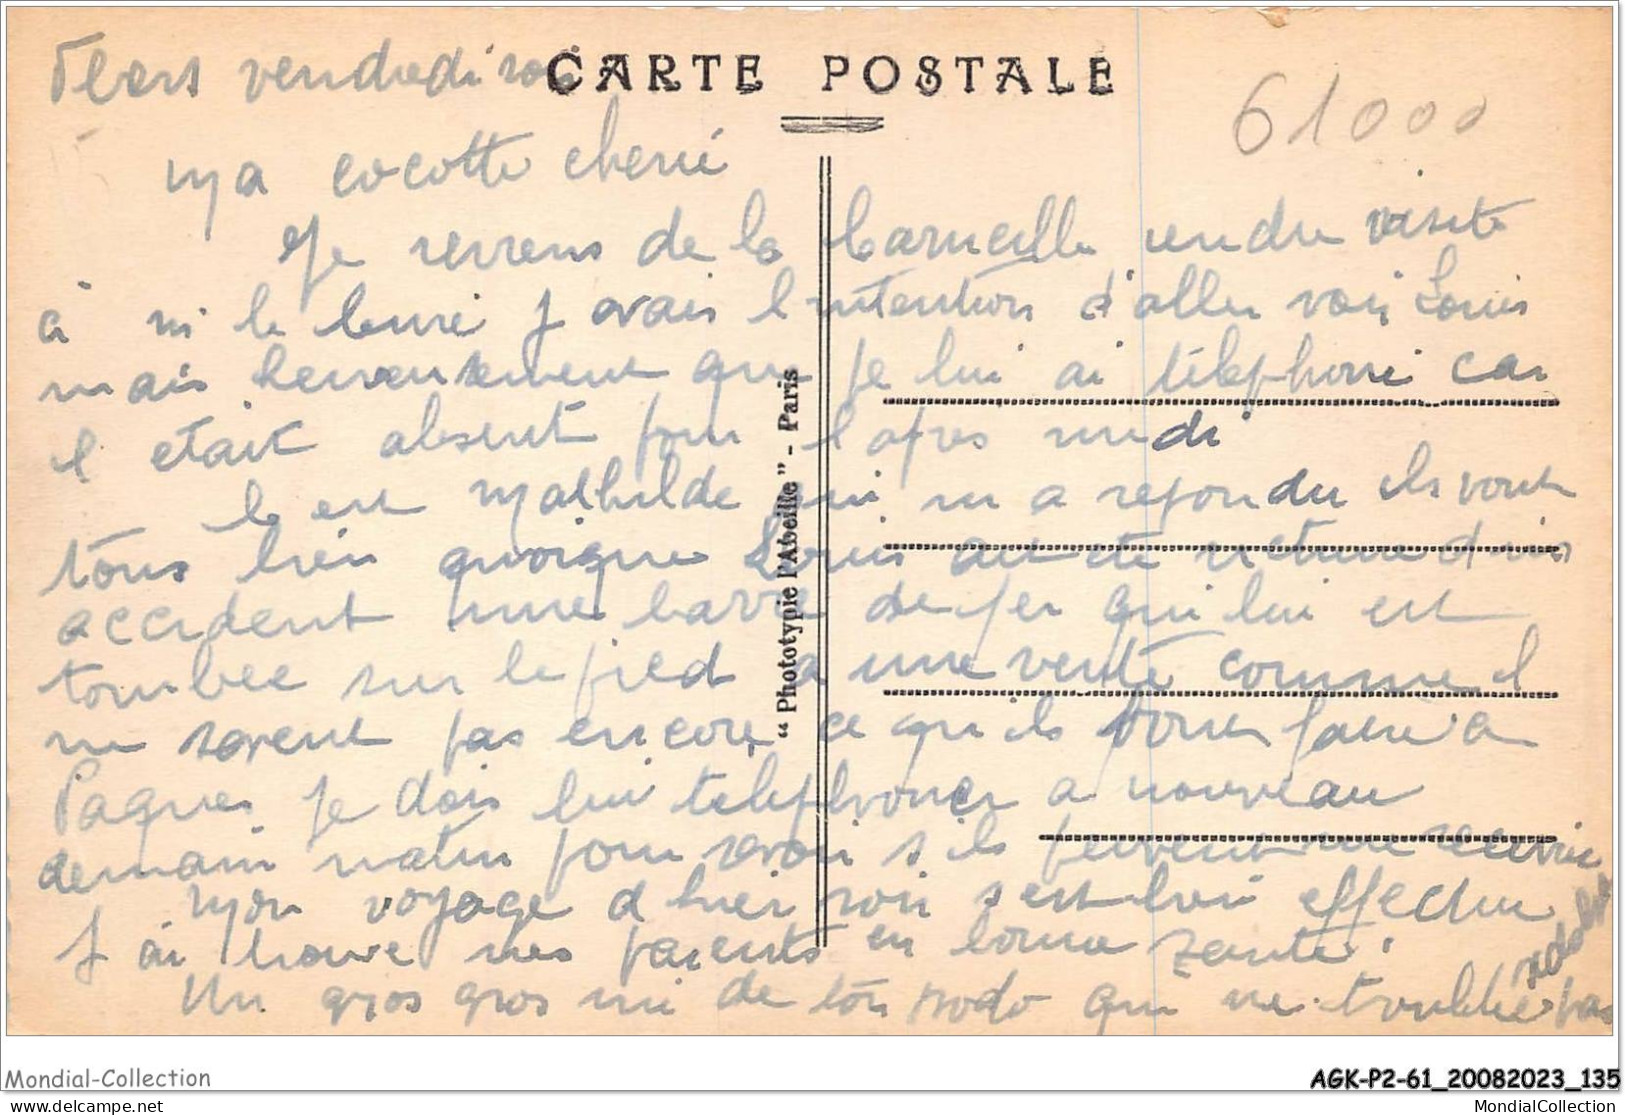 Flers vendredi soir
CARTE POSTALE
61000
Ma cocotte cherie
Je reviens de la Carneille rendre visite
à j avais l intention d'aller voir Louis
mais heureusement que je lui ai téléphoné car
il etait absent pour l apres midi
c est Mathilde qui m a repondu ils vont
tous bien quoique Louis ait ete victime d un
accident une barre de fer qui lui est
tombee sur le pied a une vente comme il
ne savent pas encore ce qu ils vont faire a
Paques je dois lui telephoner a nouveau
demain matin pour savoir s ils peuvent me recevoir
Mon voyage d hier soir s est bien effectue
J ai trouve mes parents en bonne sante
Un gros gros mi de ton Dodo qui ne t oublie pas
"Phototypie l'Abeille" - Paris
Mondial-Collection
AGK-P2-61_20082023_135
delcampe.net
MondialCollection